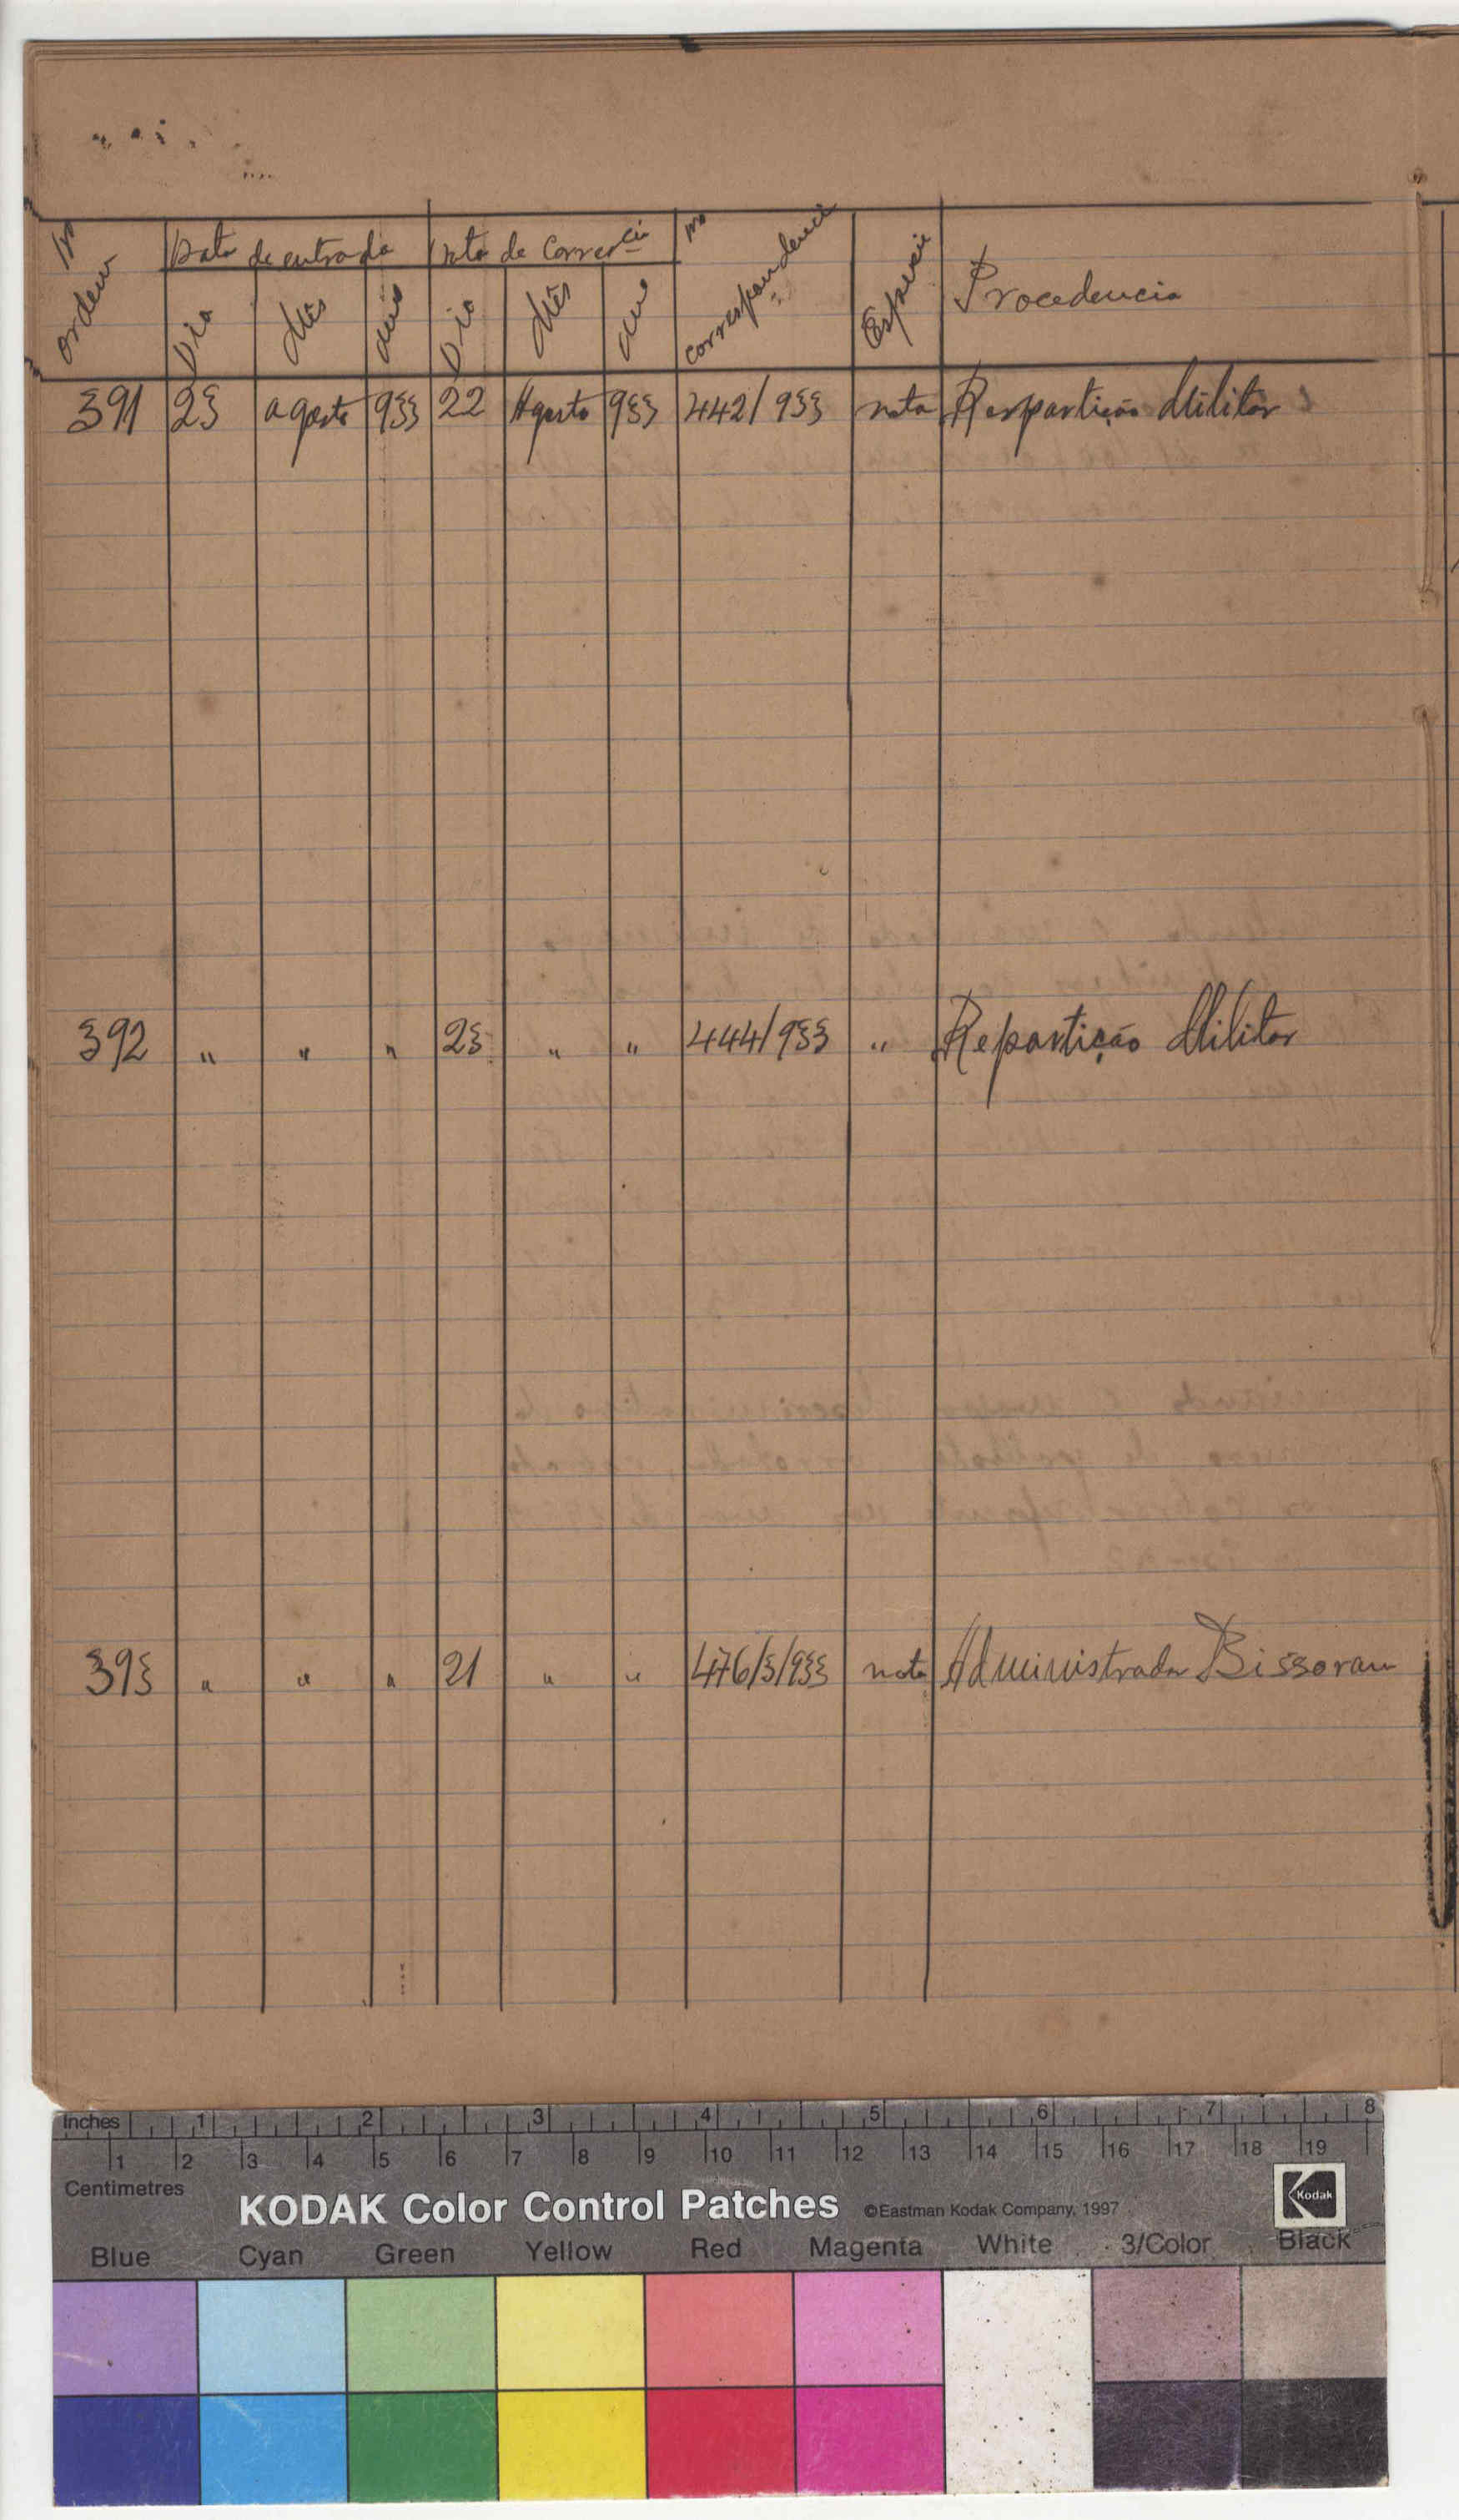 Nº ordem | Data de entrada | Data de Corres.cia | Nº correspondencia | Especie | Procedencia
Dia | Mês | ano | Dia | Mês | ano
391 | 23 | agosto | 933 | 22 | Agosto | 933 | 442/933 | nota | Respartição Militar
392 | " | " | " | 23 | " | " | 444/933 | " | Repartição Militar
393 | " | " | " | 21 | " | " | 476/3/933 | nota | Administrador Bissoran
Inches 1 2 3 4 5 6 7 8
1 2 3 4 5 6 7 8 9 10 11 12 13 14 15 16 17 18 19
Centimetres
KODAK Color Control Patches ©Eastman Kodak Company, 1997 Kodak
Blue Cyan Green Yellow Red Magenta White 3/Color Black